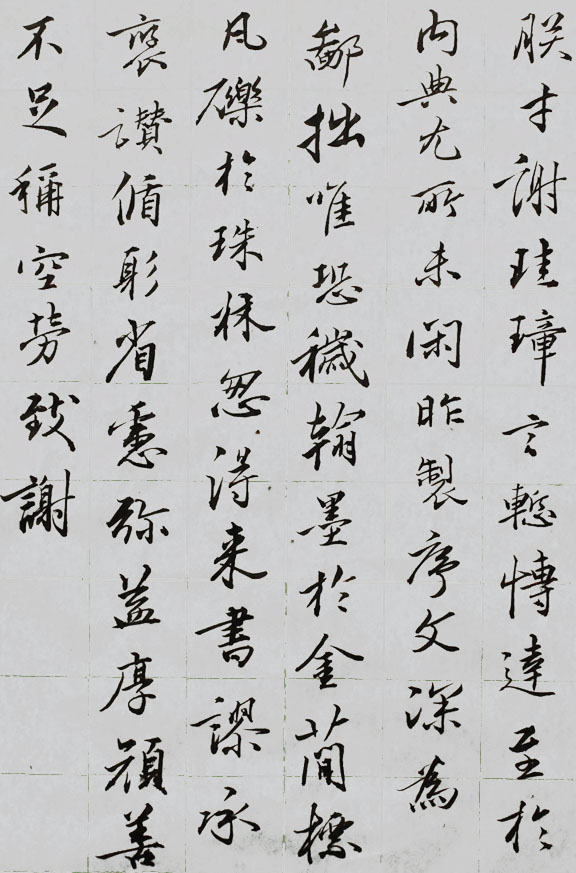 朕才謝珪璋言慙博達至於
內典尤所未閑昨製序文深為
鄙拙唯恐穢翰墨於金簡標
瓦礫於珠林忽得来書謬承
褒讚循躬省慮弥益厚顔善
不足稱空勞致謝